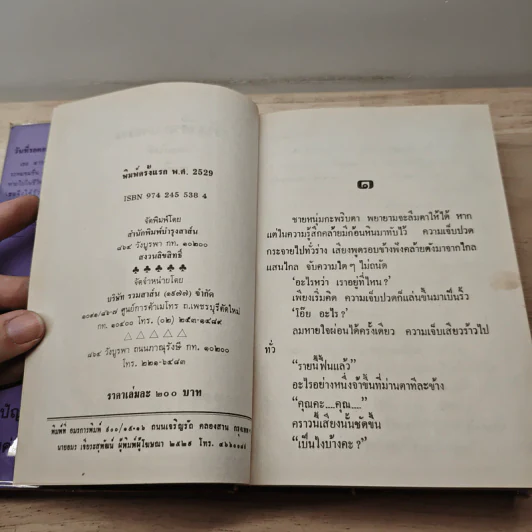 วันที่
พิมพ์ครั้งแรก พ.ศ. 2529
ISBN 974 245 538 4
จัดพิมพ์โดย
สำนักพิมพ์บำรุงสาส์น
๘๖๔ วังบูรพา กท. ๑๐๒๐๐
สงวนลิขสิทธิ์
จัดจำหน่ายโดย
บริษัท รวมสาส์น (๑๕๗๗) จำกัด
ศูนย์การค้าเมโทร ถ.เพชรบุรีตัดใหม่
กท. ๑๐๔๐๐ โทร. (๐๒)
๘๖๔ วังบูรพา ถนนภาณุรังษี กท. ๑๐๒๐๐
โทร. ๒๒๑-๖๔๘๓
ราคาเล่มละ ๒๐๐ บาท
พิมพ์ที่ อมรการพิมพ์ ๕๐๐/๑๕-๑๖ ถนนเจริญรัถ คลองสาน
ผู้พิมพ์ผู้โฆษณา ๒๕๒๙ โทร.
๑
ชายหนุ่มกะพริบตา พยายามจะลืมตาให้ได้ หาก
แต่ในความรู้สึกคล้ายมีก้อนหินมาทับไว้ ความเจ็บปวด
กระจายไปทั่วร่าง เสียงพูดรอบข้างฟังคล้ายดังมาจากไกล
แสนไกล จับความใด ๆ ไม่ถนัด
'อะไรหว่า เราอยู่ที่ไหน ?'
เพียงเริ่มคิด ความเจ็บปวดก็แล่นขึ้นมาเป็นริ้ว
'โอ๊ย อะไร ?'
ลมหายใจผ่อนได้ครั้งเดียว ความเจ็บเสียวร้าวไป
ทั่ว
"รายนี้ฟื้นแล้ว"
อะไรอย่างหนึ่งจ้าขึ้นที่ม่านตาทีละข้าง
"คุณคะ....คุณ....."
คราวนี้เสียงนั้นชัดขึ้น
"เป็นไงบ้างคะ ?"